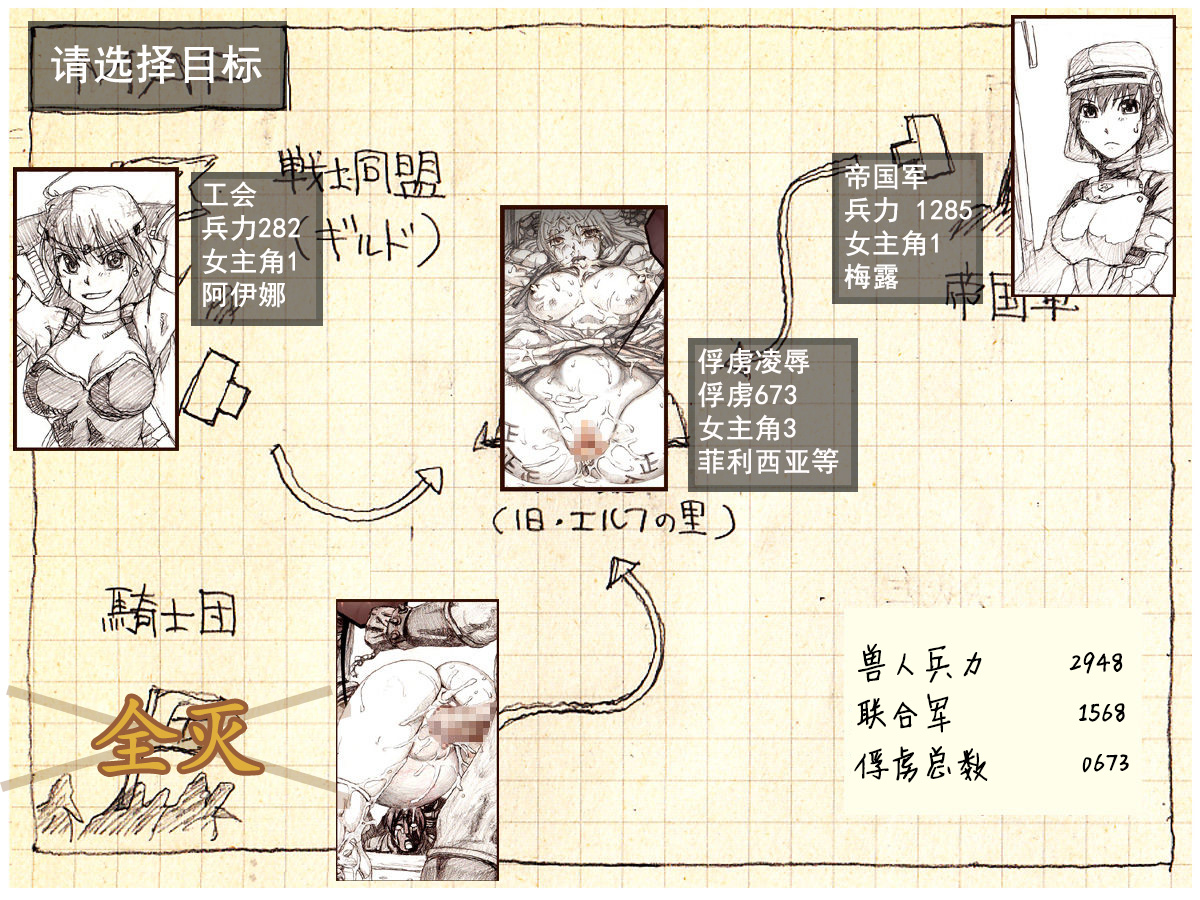 请选择目标
戦士同盟
(ギルド)
工会
兵力282
女主角1
阿伊娜
帝国军
兵力 1285
女主角1
梅露
帝国軍
俘虏凌辱
俘虏673
女主角3
菲利西亚等
正
正
正
正
(旧・エルフの里)
騎士団
全灭
兽人兵力 2948
联合军 1568
俘虏总数 0673